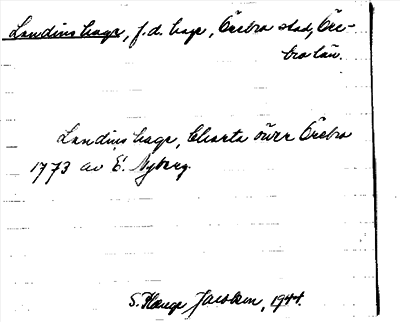 Landins hage, f.d. hage, Örebro stad, Öre-
bro län.
Landins hage, Charta över Örebro
1773 av E. Nyberg.
S. Hauge Jacobsen, 1944.